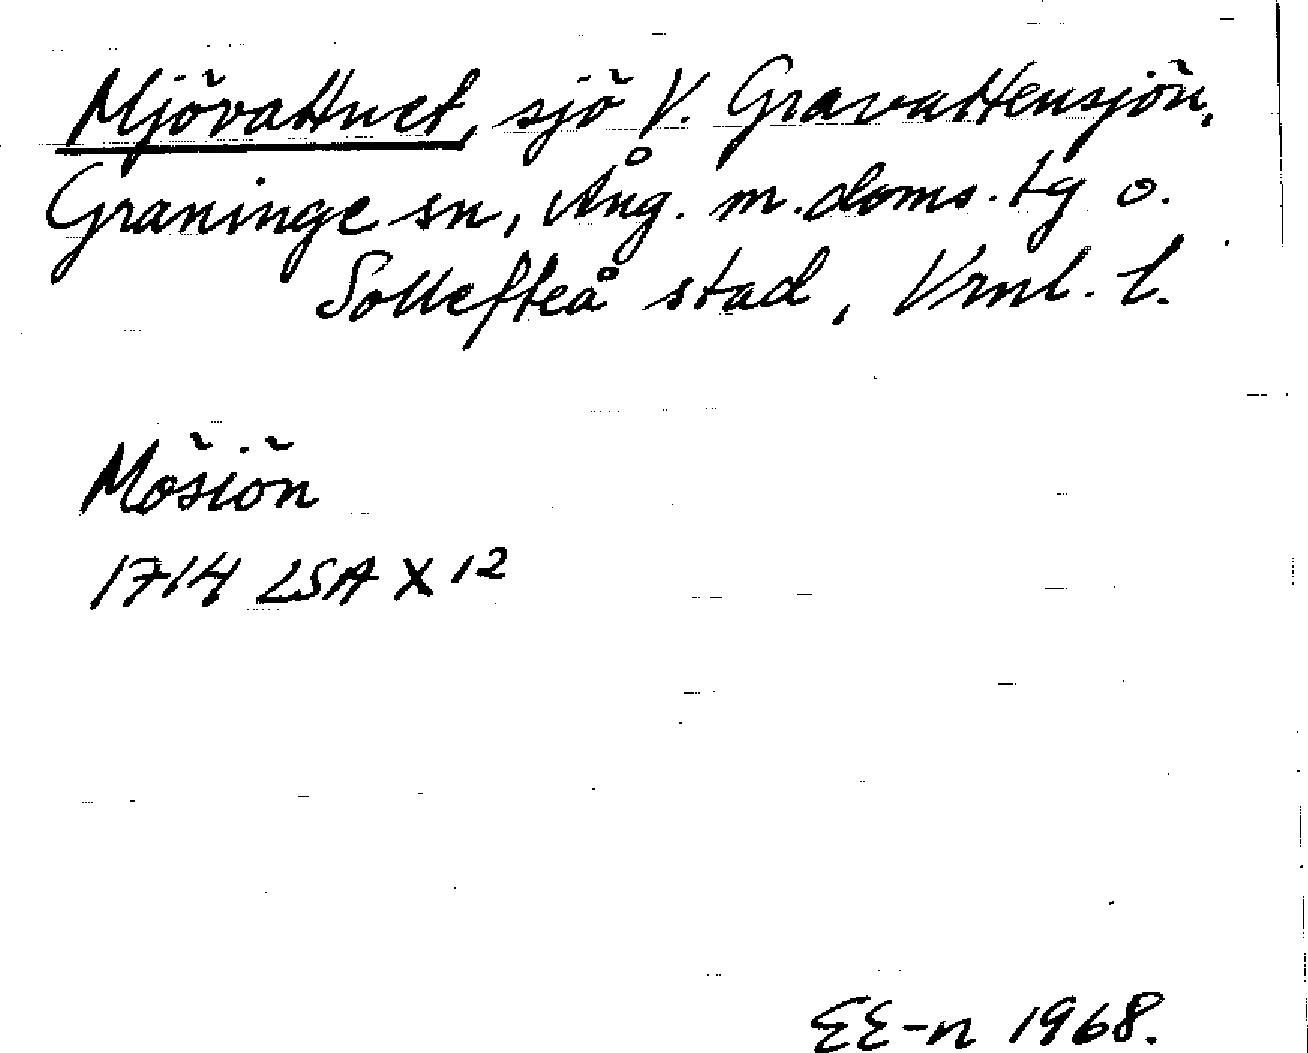 Mjövattnet, sjö V. Gravattensjön,
Graninge sn, Ång. m. doms. tg o.
Sollefteå stad, Vrnl. l.
Mösiön
1714 LSA X 12
EE-n 1968.